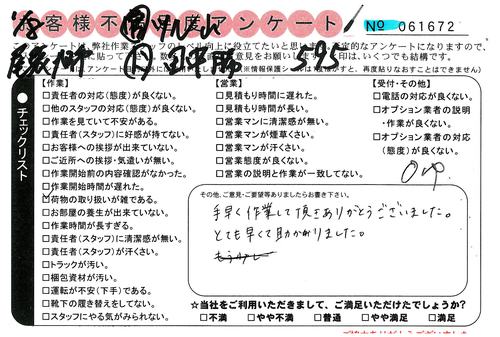 お客様不満度アンケート
№ 061672
このアンケートは、弊社作業スタッフのレベル向上に役立てたいと思い
定的なアンケートになりますので、
印は、いくつでも結構です。
(※情報保護シールは
再度貼りなおすことはできません)
チェックリスト
【作業】
□責任者の対応(態度)が良くない。
□他のスタッフの対応(態度)が良くない。
□作業を見ていて不安がある。
□責任者(スタッフ)に好感が持てない。
□お客様への挨拶が出来ていない。
□ご近所への挨拶・気遣いが無い。
□作業開始前の内容確認がなかった。
□作業開始時間が遅れた。
□荷物の取り扱いが雑である。
□お部屋の養生が出来ていない。
□作業時間が長すぎる。
□責任者(スタッフ)に清潔感が無い。
□責任者(スタッフ)が汗くさい。
□トラックが汚い。
□梱包資材が汚い。
□運転が不安(下手)である。
□靴下の履き替えをしてない。
□スタッフにやる気がみられない。
【営業】
□見積もり時間に遅れた。
□見積もり時間が長い。
□営業マンに清潔感が無い。
□営業マンが煙草くさい。
□営業マンが汗くさい。
□営業態度が良くない。
□営業の説明と作業が一致してない。
【受付・その他】
□電話の対応が良くない。
□オプション業者の説明
・作業が良くない。
□オプション業者の対応
(態度)が良くない。
その他、ご意見・ご要望等ありましたらお書き下さい。
手早く作業して頂きありがとうございました。
とても早くて助かりました。
☆当社をご利用いただきまして、ご満足いただけたでしょうか?
□不満 □やや不満 □普通 □やや満足 □満足